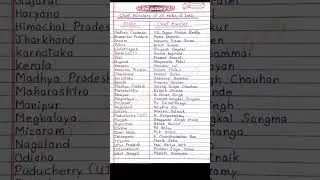 Chief Ministers of all States of India
State Chief Minister
Andhra Pradesh YS Jagan Mohan Reddy
Arunachal Pradesh Pema Khandu
Assam Himanta Biswa Sarma
Bihar Nitish Kumar
Chhattisgarh Bhupesh Baghel
Delhi (UT) Arvind Kejriwal
Goa Pramod Sawant
Gujarat Bhupendra Patel
Haryana Manohar Lal
Himachal Pradesh
Jharkhand Hemant Soren
Karnataka
Kerala Pinarayi Vijayan
Madhya Pradesh Shivraj Singh Chauhan
Maharashtra Eknath Shinde
Manipur N. Biren Singh
Meghalaya Conrad Kongkal Sangma
Mizoram Pu Zoramthanga
Nagaland Neiphiu Rio
Odisha Naveen Patnaik
Puducherry (UT) N. Rangaswamy
Punjab Bhagwant Singh Mann
Rajasthan Ashok Gehlot
Sikkim PS Golay
Tamil Nadu M.K. Stalin
Telangana K Chandrasekhar Rao
Tripura Manik Saha
Uttar Pradesh Yogi Aditya Nath
Uttarakhand Pushkar Singh Dhami
West Bengal Mamata Banerjee
Gujarat
Haryana
Himachal Pradesh
Jharkhand
Karnataka
Kerala
Madhya Pradesh
Maharashtra
Manipur
Meghalaya
Mizoram
Nagaland
Odisha
Puducherry (UT)
Chauhan
Sangma